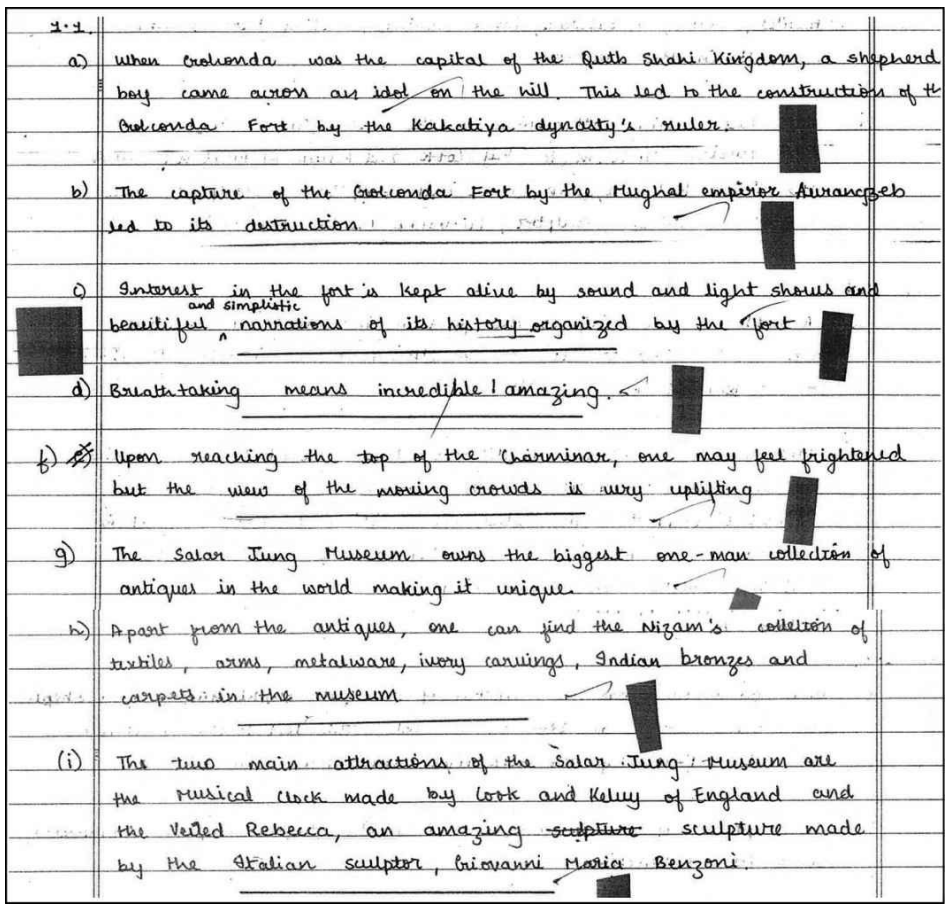 1.1.
a) When Golconda was the capital of the Qutb Shahi Kingdom, a shepherd
boy came across an idol on the hill. This led to the construction of th
Golconda Fort by the Kakatiya dynasty's ruler.
b) The capture of the Golconda Fort by the Mughal emperor Aurangzeb
led to its destruction.
c) Interest in the fort is kept alive by sound and light shows and
and simplistic
beautiful ^ narrations of its history organized by the fort.
d) Breathtaking means incredible / amazing.
f) Upon reaching the top of the Charminar, one may feel frightened
but the view of the moving crowds is very uplifting
g) The Salar Jung Museum owns the biggest one-man collection of
antiques in the world making it unique.
h) Apart from the antiques, one can find the Nizam's collection of
textiles, arms, metalware, ivory carvings, Indian bronzes and
carpets in the museum
(i) The two main attractions of the Salar Jung Museum are
the Musical Clock made by Cook and Kelvy of England and
the Veiled Rebecca, an amazing sculpture sculpture made
by the Italian sculptor, Giovanni Maria Benzoni.